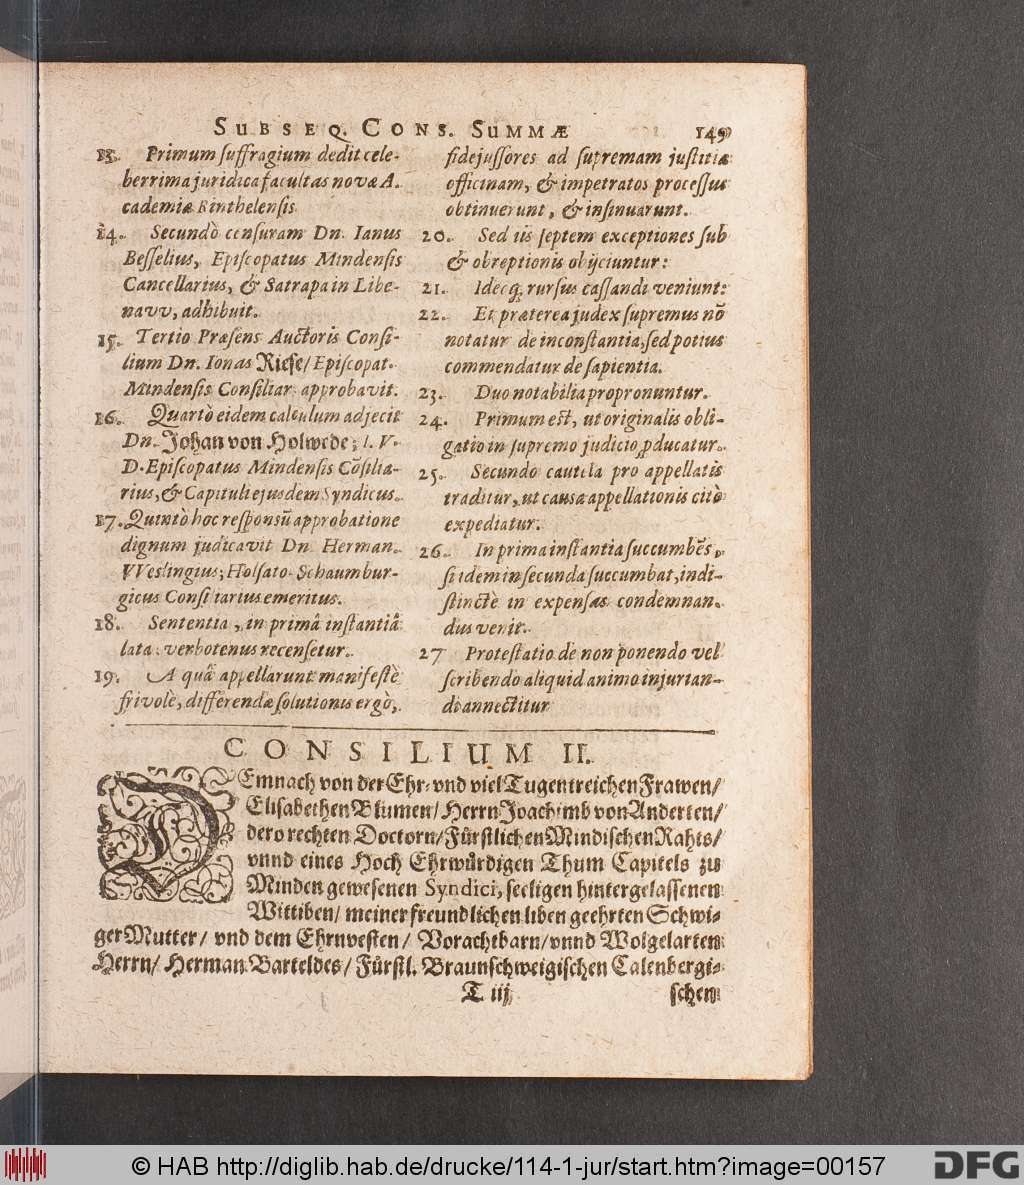 SUBSEQ. CONS. SUMMÆ 149
13. Primum suffragium dedit cele-
berrima juridica facultas novæ A-
cademiæ Rinthelensis
14. Secundò censuram Dn. Ianus
Besselius, Episcopatus Mindensis
Cancellarius, & Satrapa in Libe-
navv, adhibuit.
15. Tertio Præsens Auctoris Consi-
lium Dn. Ionas Riese/ Episcopat.
Mindensis Consiliar: approbavit.
16. Quartò eidem calculum adjecit
Dn. Johan von Holwede, I. V.
D. Episcopatus Mindensis Cõsilia-
rius, & Capituli ejusdem Syndicus.
17. Quintò hoc responsũ approbatione
dignum judicavit Dn. Herman.
VVeslingius, Holsato-Schaumbur-
gicus Consiliarius emeritus.
18. Sententia, in primâ instantiâ
lata verbotenus recensetur.
19. A quâ appellarunt manifestè
frivolè, differendæ solutionis ergò,
fidejussores ad supremam justitiæ
officinam, & impetratos processus
obtinuerunt, & insinuarunt.
20. Sed iis septem exceptiones sub
& obreptionis obijciuntur:
21. Ideoq; rursus cassandi veniunt:
22. Et præterea judex supremus nõ
notatur de inconstantia, sed potius
commendatur de sapientia.
23. Duo notabilia propronuntur.
24. Primum est, ut originalis obli-
gatio in supremo judicio ꝓducatur.
25. Secundo cautela pro appellatis
traditur, ut causa appellationis citò
expediatur.
26. In prima instantia succumbẽs,
si idem in secunda succumbat, indi-
stinctè in expensas condemnan-
dus venit.
27 Protestatio de non ponendo vel
scribendo aliquid animo injurian-
di annectitur
CONSILIUM II.
DEmnach von der Ehr- vnd viel Tugentreichen Frawen/
Elisabethen Blumen/ Herrn Joachimb von Anderten/
dero rechten Doctorn/ Fürstlichen Mindischen Rahts/
vnnd eines Hoch Ehrwürdigen Thum Capitels zu
Minden gewesenen Syndici, seeligen hintergelassenen
Wittiben/ meiner freundlichen liben geehrten Schwi-
ger Mutter/ vnd dem Ehrnvesten/ Vorachtbarn/ vnnd Wolgelarten
Herrn/ Herman Barteldes/ Fürstl. Braunschweigischen Calenbergi-
T iij schen
© HAB http://diglib.hab.de/drucke/114-1-jur/start.htm?image=00157 DFG